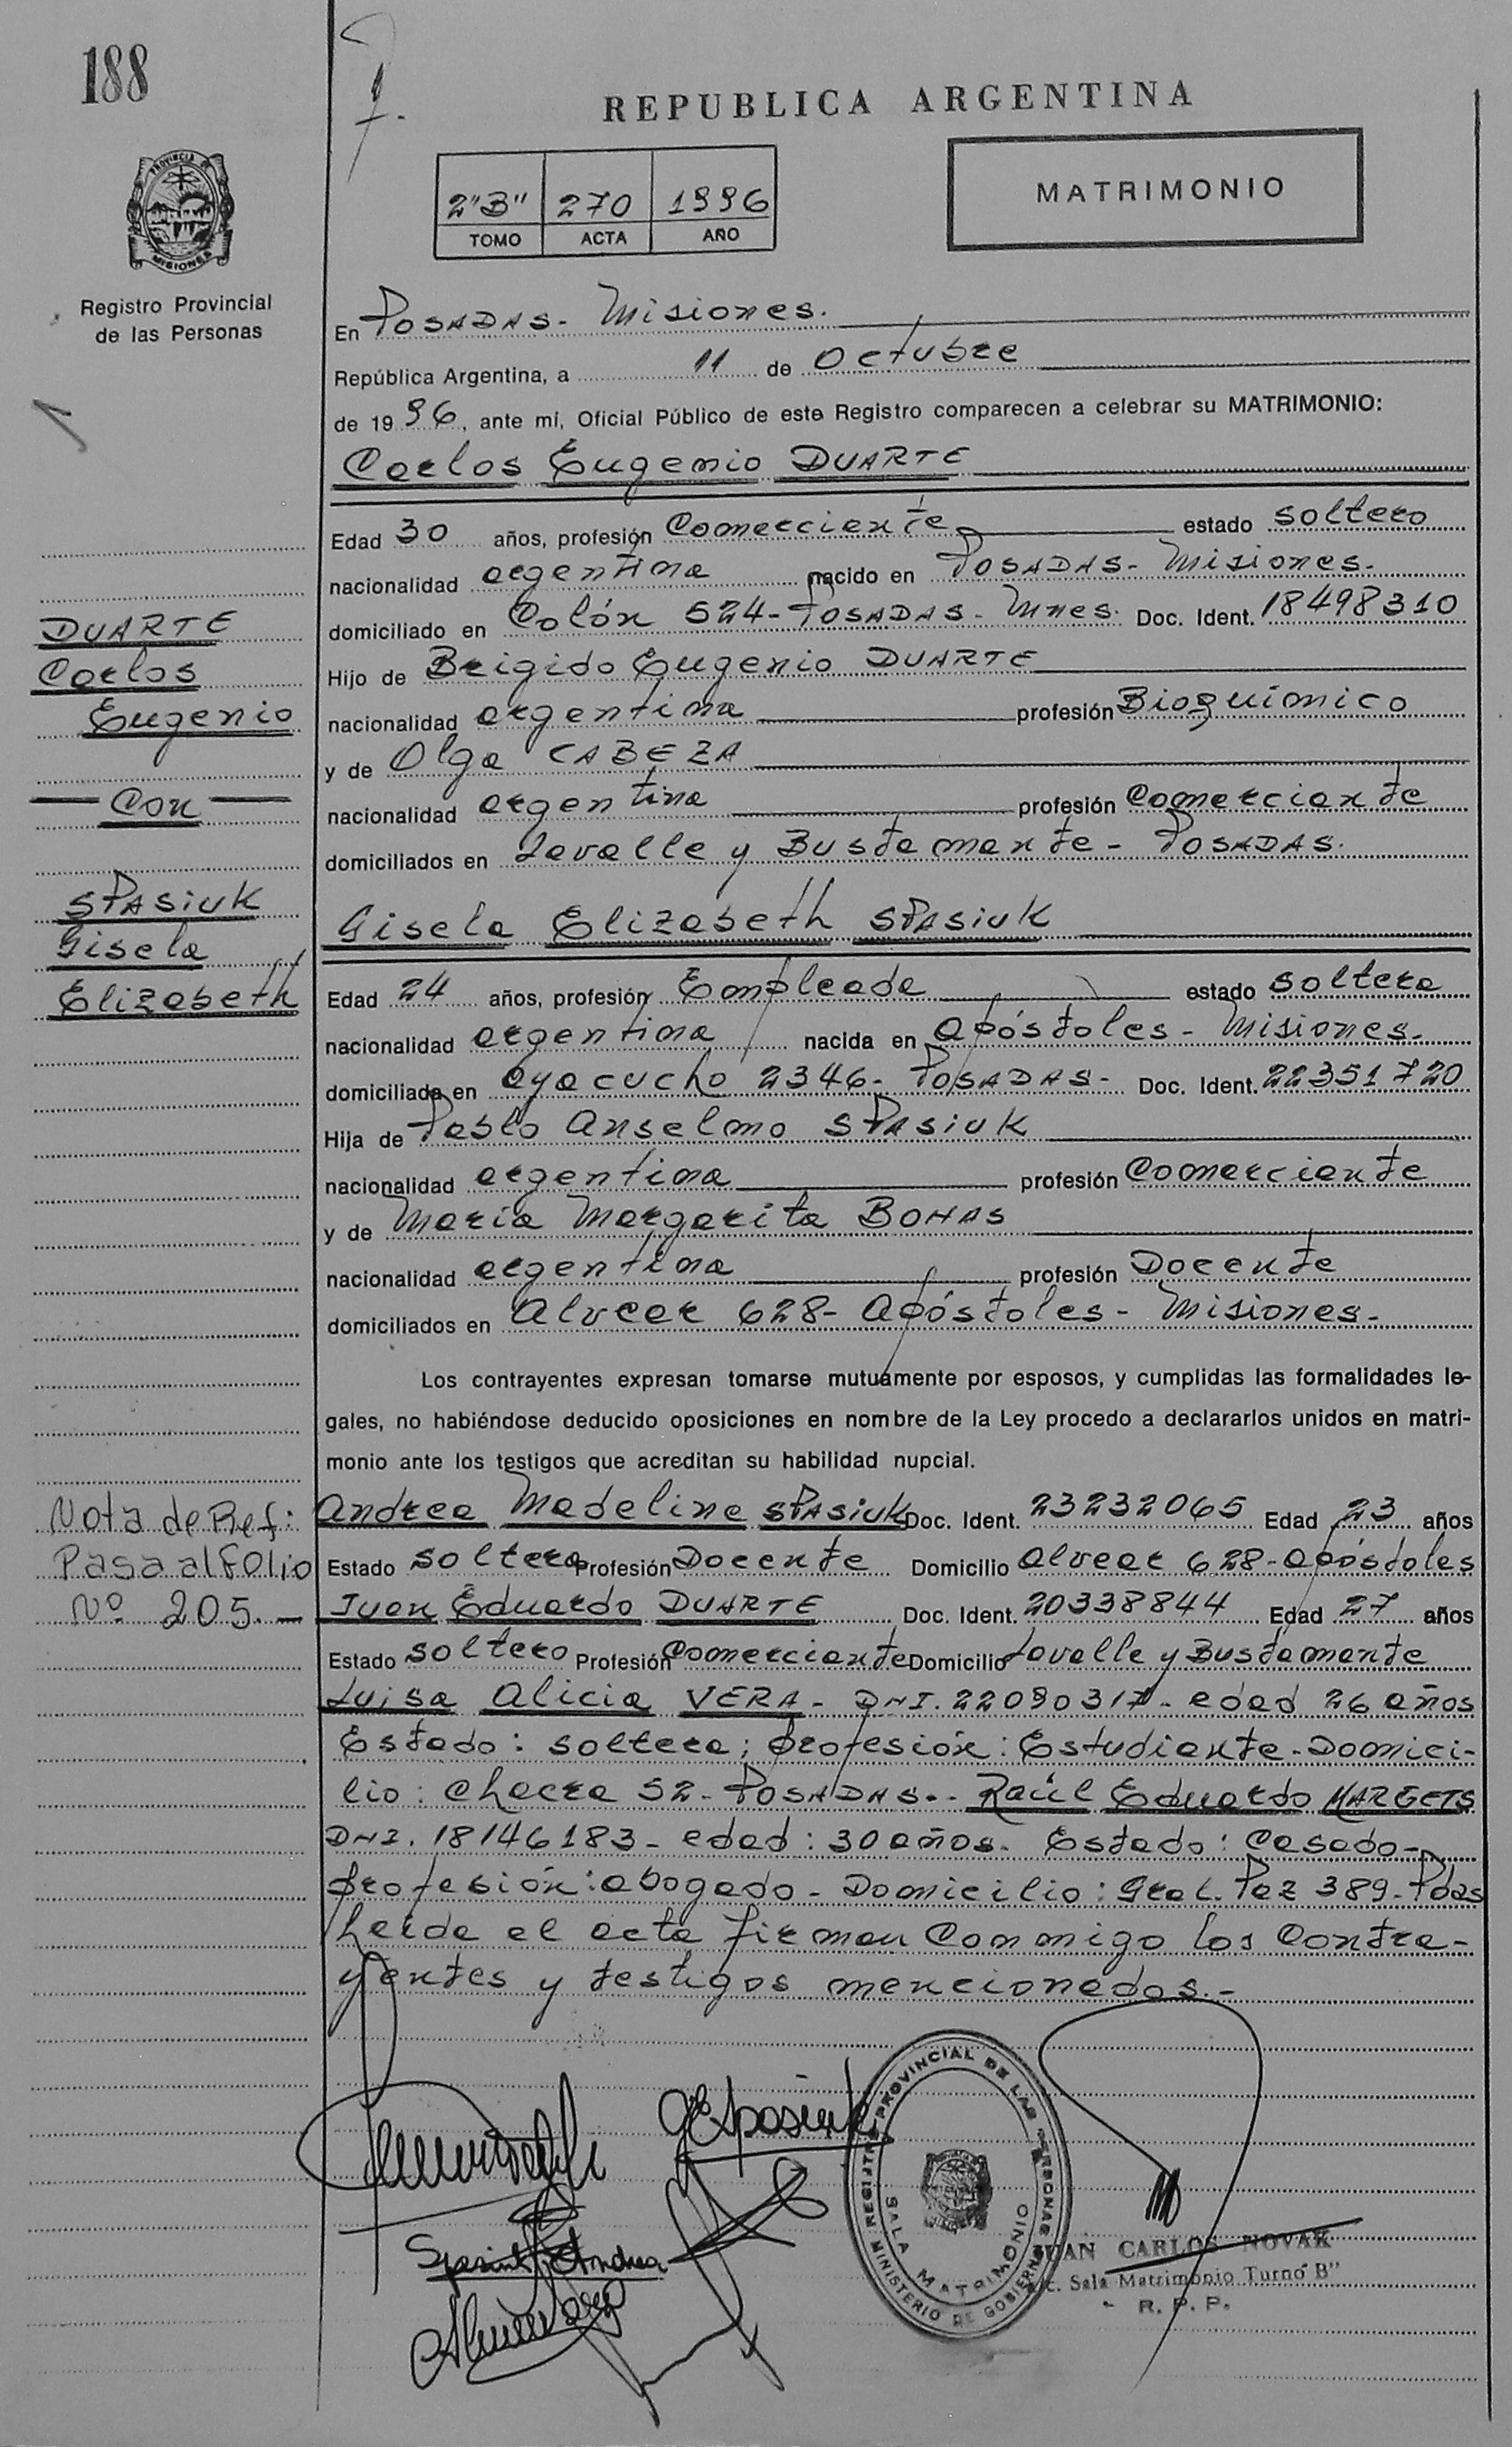 188
REPUBLICA ARGENTINA
MATRIMONIO
2"B" 270 1996
TOMO ACTA AÑO
PROVINCIA DE MISIONES
Registro Provincial
de las Personas
En POSADAS - Misiones.
República Argentina, a 11 de Octubre
de 1996, ante mí, Oficial Público de este Registro comparecen a celebrar su MATRIMONIO:
Carlos Eugenio DUARTE
Edad 30 años, profesión Comerciante estado soltero
nacionalidad argentina nacido en POSADAS - Misiones.
domiciliado en Colón 524 - POSADAS - Mnes. Doc. Ident. 18498310
Hijo de Brigido Eugenio DUARTE
nacionalidad argentina profesión Bioquímico
y de Olga CABEZA
nacionalidad argentina profesión Comerciante
domiciliados en Lavalle y Bustamante - POSADAS.
DUARTE
Carlos
Eugenio
— Con —
SPASIUK
Gisela
Elizabeth
Gisela Elizabeth SPASIUK
Edad 24 años, profesión Empleada estado soltera
nacionalidad argentina nacida en Apóstoles - Misiones.
domiciliada en Ayacucho 2346 - POSADAS - Doc. Ident. 22351720
Hija de Pablo Anselmo SPASIUK
nacionalidad argentina profesión Comerciante
y de María Margarita BOHAS
nacionalidad argentina profesión Docente
domiciliados en Alvear 628 - Apóstoles - Misiones.
Los contrayentes expresan tomarse mutuamente por esposos, y cumplidas las formalidades le-
gales, no habiéndose deducido oposiciones en nombre de la Ley procedo a declararlos unidos en matri-
monio ante los testigos que acreditan su habilidad nupcial.
Nota de Ref:
Pasa al Folio
Nº 205. —
Andrea Madeline SPASIUK Doc. Ident. 23232065 Edad 23 años
Estado soltera Profesión Docente Domicilio Alvear 628 - Apóstoles
Juan Eduardo DUARTE Doc. Ident. 20338844 Edad 27 años
Estado soltero Profesión Comerciante Domicilio Lavalle y Bustamante
Luisa Alicia VERA - DNI. 22090317 - edad 26 años
Estado: soltera; profesión: Estudiante - Domici-
lio: Chacra 52 - POSADAS.- Raúl Eduardo MARGETS
DNI. 18146183 - edad: 30 años. Estado: Casado -
profesión: abogado - Domicilio: Gral. Paz 389 - Pdas
Leida el acta firman conmigo los contra-
yentes y testigos mencionados.-
GESpasiuk
Spasiuk Andrea
REGISTRO PROVINCIAL DE LAS PERSONAS
SALA MATRIMONIO
MINISTERIO DE GOBIERNO
JUAN CARLOS NOVAK
Sala Matrimonio Turno B"
R. P. P.